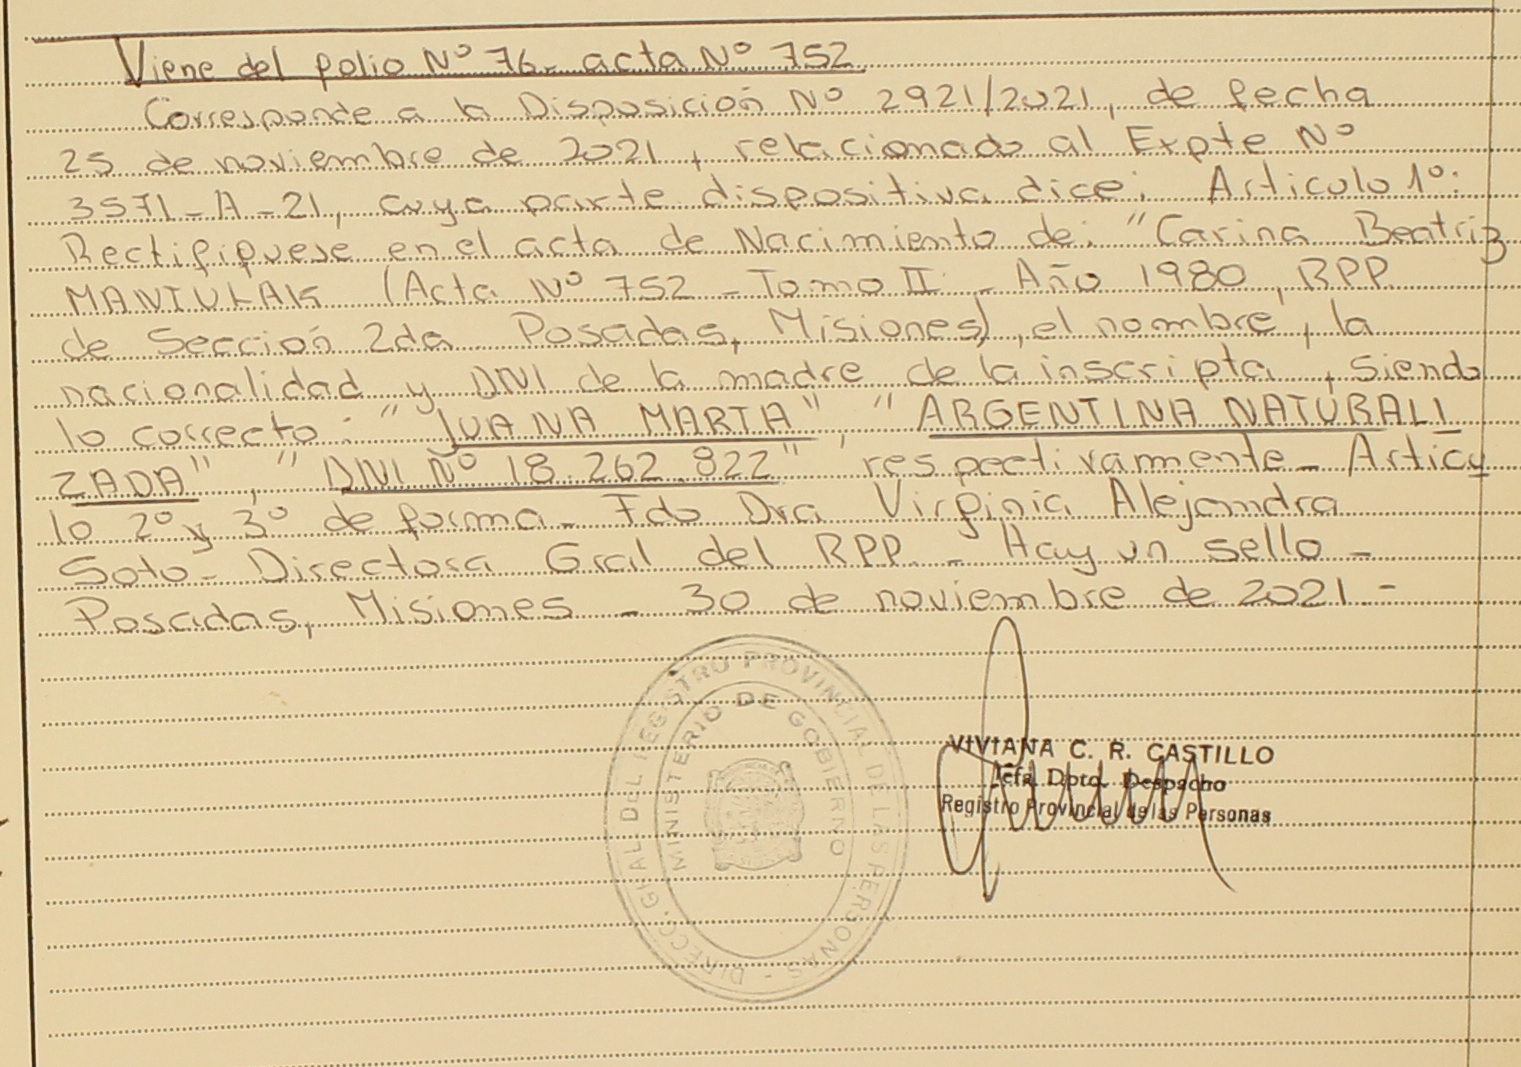 Viene del folio Nº 76- acta Nº 752
Corresponde a la Disposición Nº 2921/2021, de fecha
25 de noviembre de 2021, relacionado al Expte Nº
3571-A-21, cuya parte dispositiva dice: Articulo 1º:
Rectifiquese en el acta de Nacimiento de: "Carina Beatriz
MANIULAK (Acta Nº 752 - Tomo II - Año 1980, RPP.
de Sección 2da Posadas, Misiones), el nombre, la
nacionalidad y DNI de la madre de la inscripta, siendo
lo correcto: "JUANA MARTA", "ARGENTINA NATURALI
ZADA", "DNI Nº 18.262.822" respectivamente- Articu
lo 2º y 3º de forma- Fdo Dra Virginia Alejandra
Soto- Directora Gral del RPP.- Hay un sello -
Posadas, Misiones - 30 de noviembre de 2021 -
DIRECC. GRAL DEL REGISTRO PROVINCIAL DE LAS PERSONAS -
MINISTERIO DE GOBIERNO
VIVIANA C. R. CASTILLO
Jefa Dpto. Despacho
Registro Provincial de las Personas